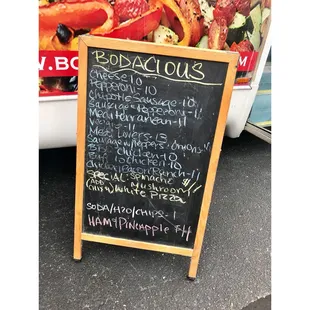 WWW.BO
BODACIOUS
Cheese 10
Pepperoni - 10
Chipotle Sausage - 10
Sausage + Pepperoni - 11
Mediterranean - 11
Veggie - 11
Meat Lovers - 13
Sausage w/Peppers + Onions
BBQ Chicken - 10
Chicken - 10
Chicken Bacon Ranch - 11
SPECIAL: Spinach
Mushroom
White Pizza
SODA/H2O/CHIPS - 1
HAM & PINEAPPLE